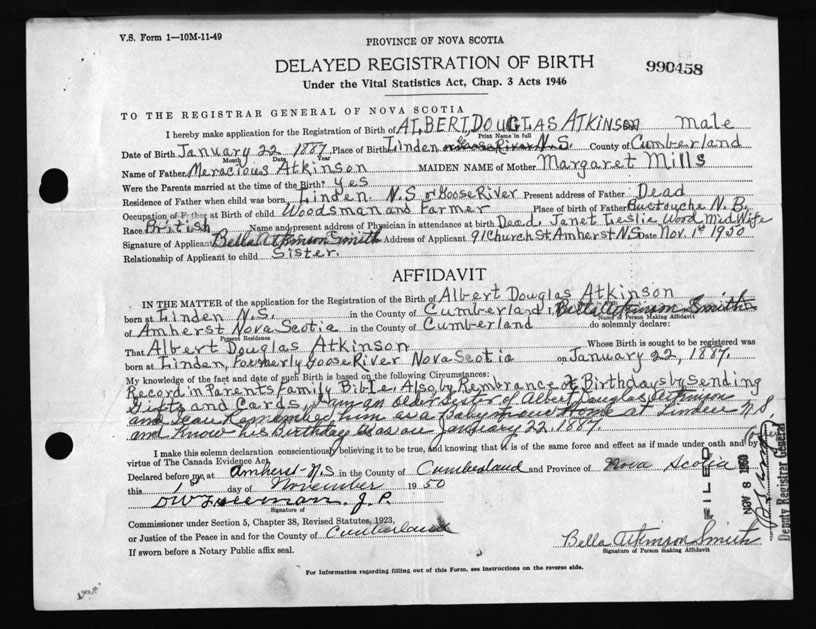 V.S. Form 1—10M-11-49
PROVINCE OF NOVA SCOTIA
DELAYED REGISTRATION OF BIRTH
990458
Under the Vital Statistics Act, Chap. 3 Acts 1946
TO THE REGISTRAR GENERAL OF NOVA SCOTIA
I hereby make application for the Registration of Birth of ALBERT, DOUGLAS ATKINSON Male
Print Name in full
Date of Birth January 22 1887 Place of Birth Linden or Goose River N.S. County of Cumberland
Month Date Year
Name of Father Meracious Atkinson MAIDEN NAME of Mother Margaret Mills
Were the Parents married at the time of the Birth? Yes
Residence of Father when child was born, Linden N.S or Goose River Present address of Father Dead
Occupation of Father at Birth of child Woodsman and Farmer Place of birth of Father Buctouche N.B.
Race British Name and present address of Physician in attendance at birth Dead. Janet Leslie Wood Med Wife
Signature of Applicant Bella Atkinson Smith Address of Applicant 91 Church St Amherst N.S Date Nov. 1st 1950
Relationship of Applicant to child Sister.
AFFIDAVIT
IN THE MATTER of the application for the Registration of the Birth of Albert Douglas Atkinson
born at Linden N.S. in the County of Cumberland I, Bella Atkinson Smith
Name of Person Making Affidavit
of Amherst Nova Scotia in the County of Cumberland do solemnly declare:
Present Residence
That Albert Douglas Atkinson Whose Birth is sought to be registered was
born at Linden, Formerly Goose River Nova Scotia on January 22, 1887.
My knowledge of the fact and date of such Birth is based on the following Circumstances:
Record in Parents Family Bible. Also, by Rembrance of Birthdays by Sending
Gifts and Cards, I am an older sister of Albert Douglas Atkinson
and I can Remember him as a Baby in our Home at Linden N.S,
and Know his Birthday was on January 22, 1887.
I make this solemn declaration conscientiously believing it to be true, and knowing that it is of the same force and effect as if made under oath and by
virtue of The Canada Evidence Act.
Declared before me at Amherst-N.S in the County of Cumberland and Province of Nova Scotia
this 1st day of November 1950
DW Freeman. J.P.
Signature of
Commissioner under Section 5, Chapter 38, Revised Statutes, 1923,
or Justice of the Peace in and for the County of Cumberland
If sworn before a Notary Public affix seal.
Bella Atkinson Smith
Signature of Person making Affidavit
FILED
NOV 8 1950
Deputy Registrar General
For Information regarding filling out of this Form, see Instructions on the reverse side.